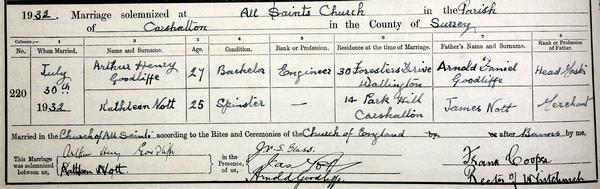 1932. Marriage solemnized at All Saints Church in the Parish
of Carshalton in the County of Surrey
Columns:— 1 2 3 4 5 6 7 8
No. When Married. Name and Surname. Age. Condition. Rank or Profession. Residence at the time of Marriage. Father's Name and Surname. Rank or Profession of Father.
220 July 30th 1932 Arthur Henry Goodliffe 27 Bachelor Engineer 30 Foresters Drive Wallington Arnold Goodliffe Head
Kathleen Nott 25 Spinster — 14 Park Hill Carshalton James Nott Merchant
Married in the Church of All Saints according to the Rites and Ceremonies of the Church of England by or after Banns by me,
This Marriage was solemnized between us, Arthur Henry Goodliffe Kathleen Nott in the Presence of us, Jas Nott Arnold Goodliffe Frank Cooper
Rector of Whitchurch